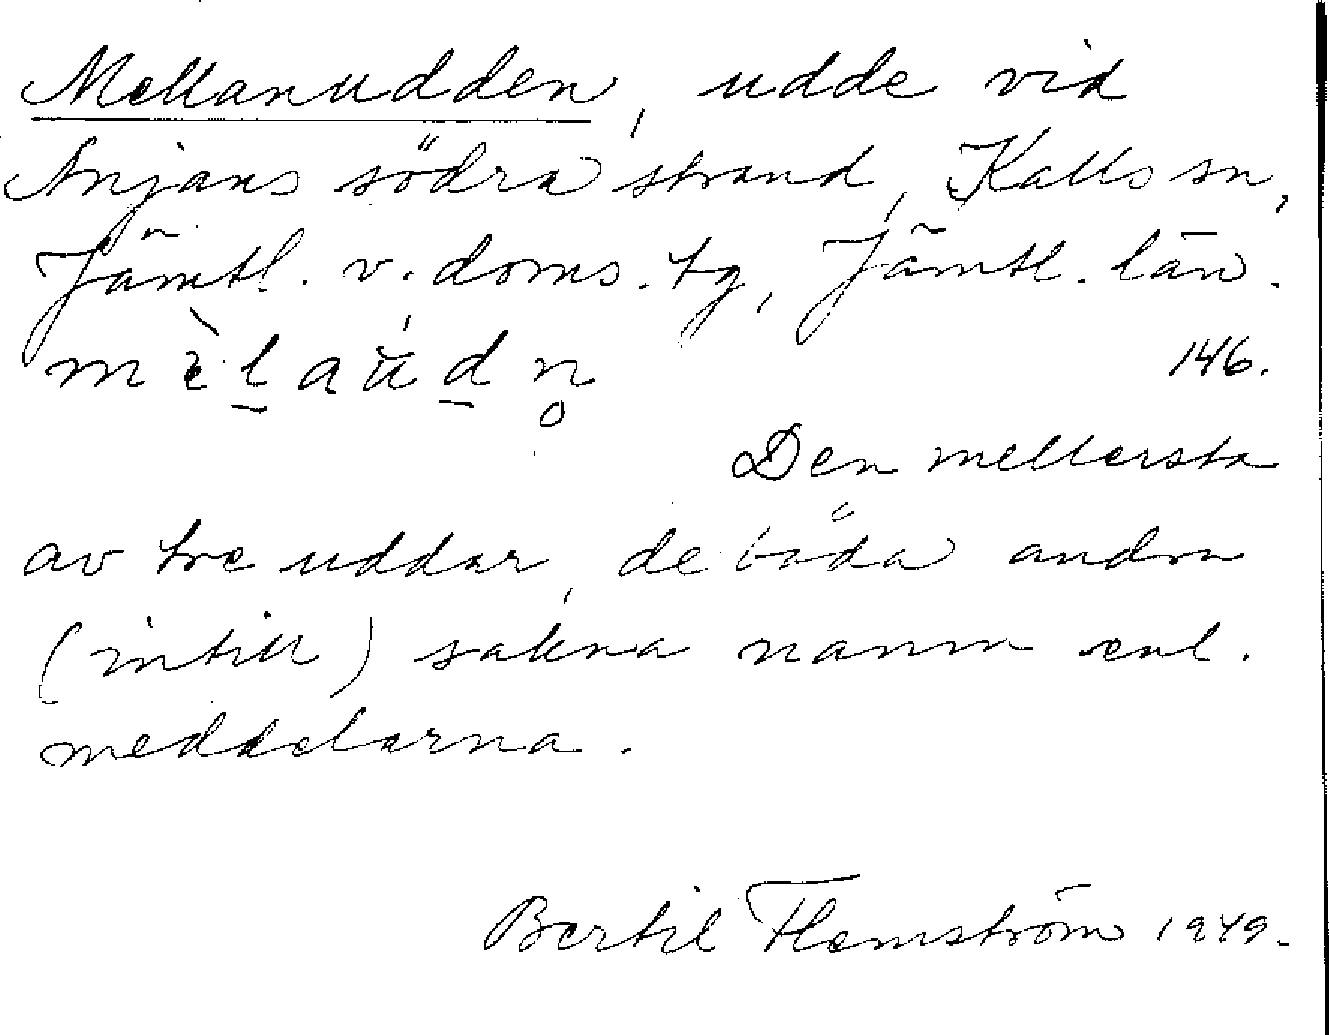 Mellanudden, udde vid
Anjans södra strand, Kalls sn,
Jämtl. v. doms. tg, Jämtl. län.
mèlaŭdn̥
146.
Den mellersta
av tre uddar, de båda andra
(intill) sakna namn enl.
meddelarna.
Bertil Flemström 1949.